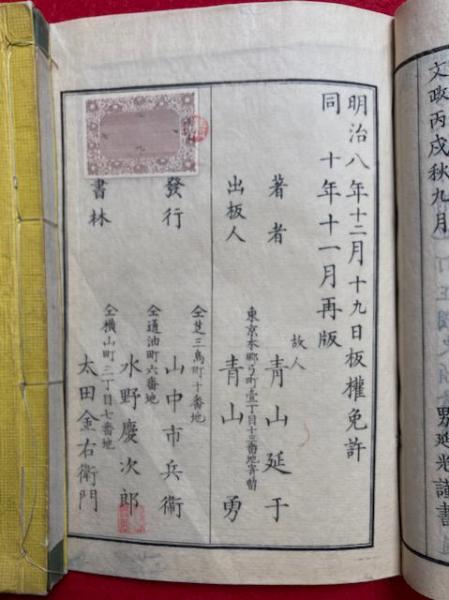 文政丙戌秋九月
男延光謹書
明治八年十二月十九日板權免許
同 十年十一月再版
著者 故人 青山延于
出板人 東京本郷弓町壹丁目十三番地寄留 青山勇
發行 仝芝三島町十番地 山中市兵衞
書林 仝通油町六番地 水野慶次郎
仝横山町三丁目七番地 太田金右衞門